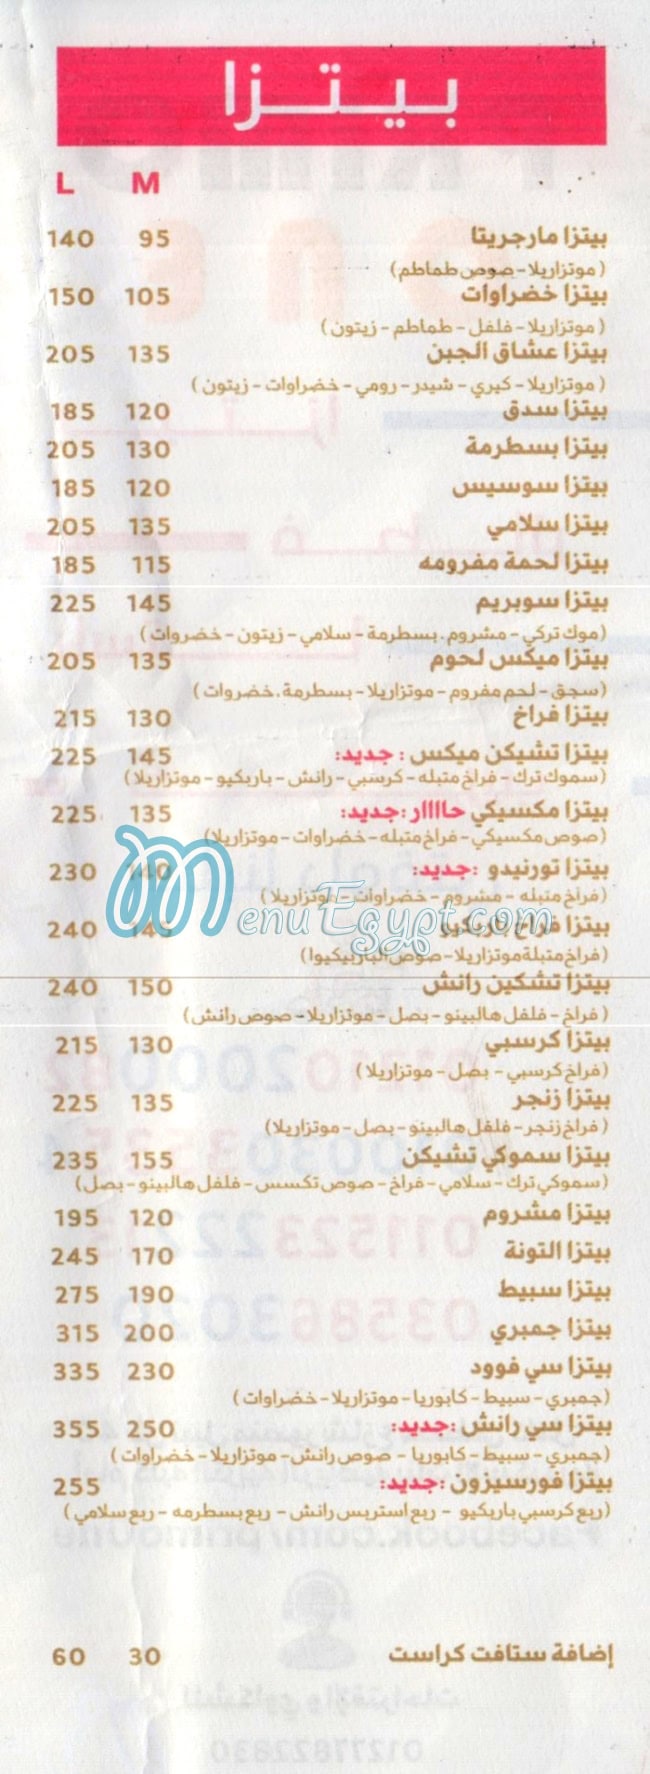 بيتزا
M L
بيتزا مارجريتا 95 140
(موتزاريلا - صوص طماطم)
بيتزا خضراوات 105 150
(موتزاريلا - فلفل - طماطم - زيتون)
بيتزا عشاق الجبن 135 205
(موتزاريلا - كيري - شيدر - رومي - خضراوات - زيتون)
بيتزا سدق 120 185
بيتزا بسطرمة 130 205
بيتزا سوسيس 120 185
بيتزا سلامي 135 205
بيتزا لحمة مفرومه 115 185
بيتزا سوبريم 145 225
(موك تركي - مشروم. بسطرمة - سلامي - زيتون - خضروات)
بيتزا ميكس لحوم 135 205
(سجق - لحم مفروم - موتزاريلا - بسطرمة. خضروات)
بيتزا فراخ 130 215
بيتزا تشيكن ميكس : جديد: 145 225
(سموك ترك - فراخ متبله - كرسبي - رانش - باربكيو - موتزاريلا)
بيتزا مكسيكي حاااار :جديد: 135 225
(صوص مكسيكي - فراخ متبله - خضراوات - موتزاريلا)
بيتزا تورنيدو :جديد: 140 230
(فراخ متبله - مشروم - خضراوات - موتزاريلا)
MenuEgypt.com
بيتزا فراخ باربكيو 145 240
(فراخ متبلة موتزاريلا - صوص الباربيكيوا)
بيتزا تشكين رانش 150 240
(فراخ - فلفل هالبينو - بصل - موتزاريلا - صوص رانش)
بيتزا كرسبي 130 215
(فراخ كرسبي - بصل - موتزاريلا)
بيتزا زنجر 135 225
(فراخ زنجر - فلفل هالبينو - بصل - موتزاريلا)
بيتزا سموكي تشيكن 155 235
(سموكي ترك - سلامي - فراخ - صوص تكسس - فلفل هالبينو - بصل)
بيتزا مشروم 120 195
بيتزا التونة 170 245
بيتزا سبيط 190 275
بيتزا جمبري 200 315
بيتزا سي فوود 230 335
(جمبري - سبيط - كابوريا - موتزاريلا - خضراوات)
بيتزا سي رانش :جديد: 250 355
(جمبري - سبيط - كابوريا - صوص رانش - موتزاريلا - خضراوات)
بيتزا فورسيزون :جديد: 255
(ربع كرسبي باربكيو - ربع استربس رانش - ربع بسطرمه - ربع سلامي)
إضافة ستافت كراست 30 60